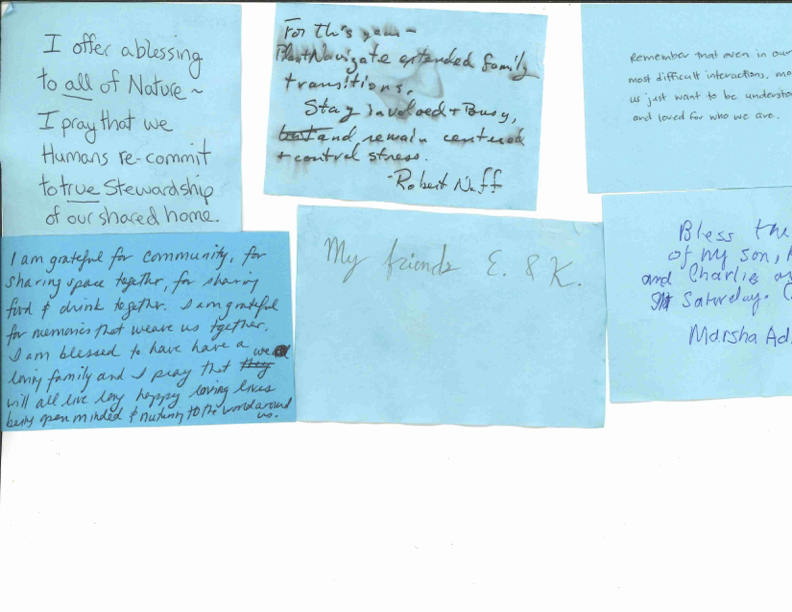 I offer a blessing
to all of Nature ~
I pray that we
Humans re-commit
to true Stewardship
of our shared home.
For this year –
Navigate extended family
transitions.
Stay involved + Busy,
but and remain centered
+ control stress.
-Robert Neff
Remember that even in our
most difficult interactions, mo
us just want to be understo
and loved for who we are.
I am grateful for community, for
sharing space together, for sharing
food & drink together. I am grateful
for memories that weave us together.
I am blessed to have have a
loving family and I pray that they we
will all live long happy loving lives
being open minded & nurturing to the world around
us.
My friends E. & K.
Bless the
of my son,
and Charlie
Saturday.
Marsha Ad